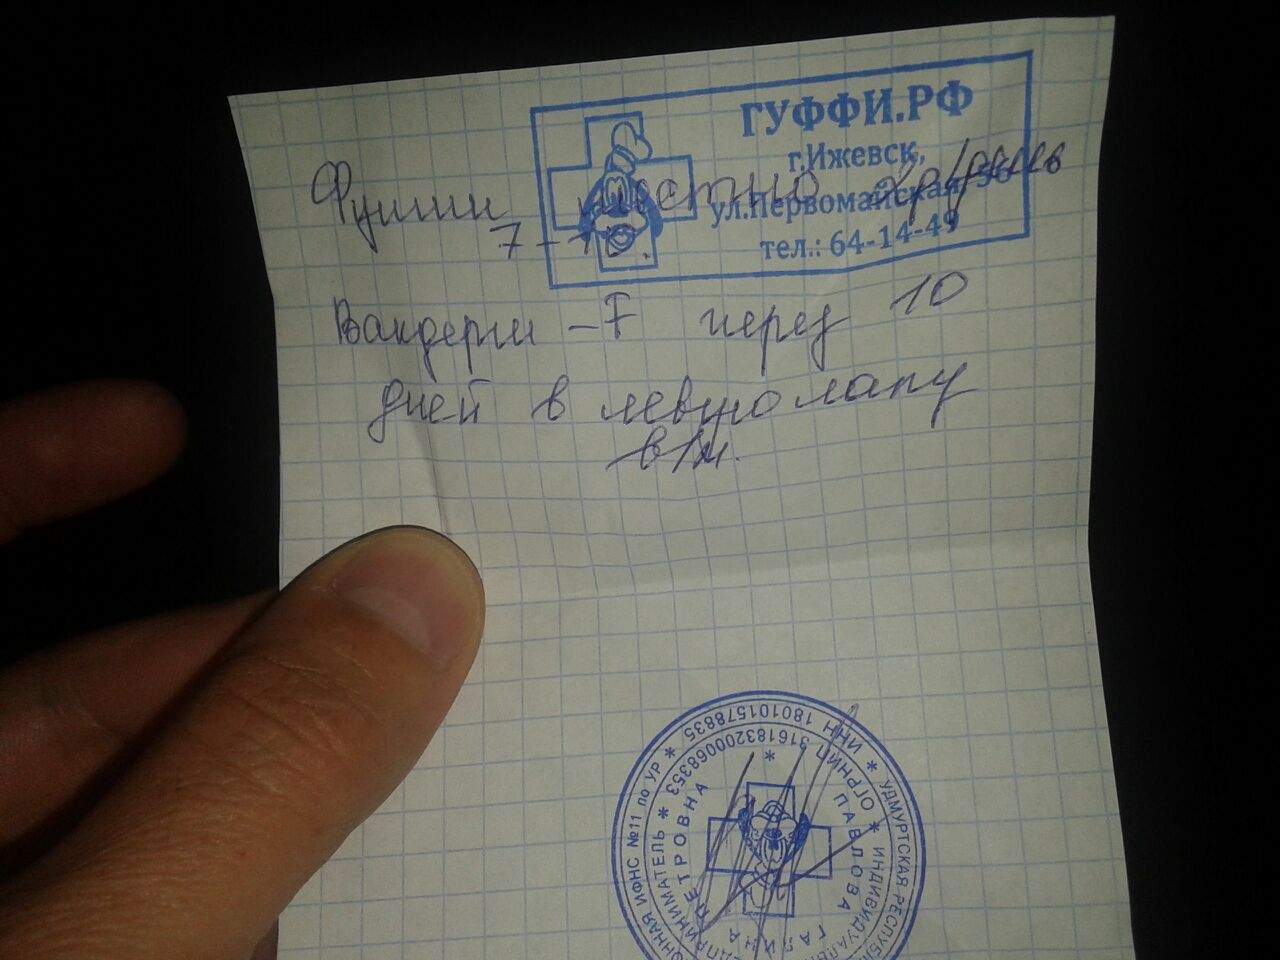 ГУФФИ.РФ
г.Ижевск,
ул.Первомайская, 36
тел.: 64-14-49
местно 2р/день
7-10
Вакдерм -F через 10
дней в левую лапу
в/м.
УДМУРТСКАЯ РЕСПУБ
ИНН 180101578835
ИФНС №11 по УР
ИНДИВИДУАЛЬ
ПРИНИМАТЕЛЬ
ОГРНИП 316183200068353
ПАВЛОВА ГАЛИНА ПЕТРОВНА